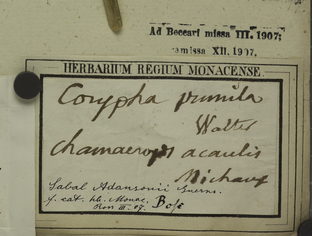 Ad Beccari missa III. 1907;
remissa XII. 1907.
HERBARIUM REGIUM MONACENSE.
Corypha pumila
Walter
Chamaerops acaulis
Michaux
Sabal Adansonii Guerns.
f. cat. hb. Monac. Bosc
III. 07.